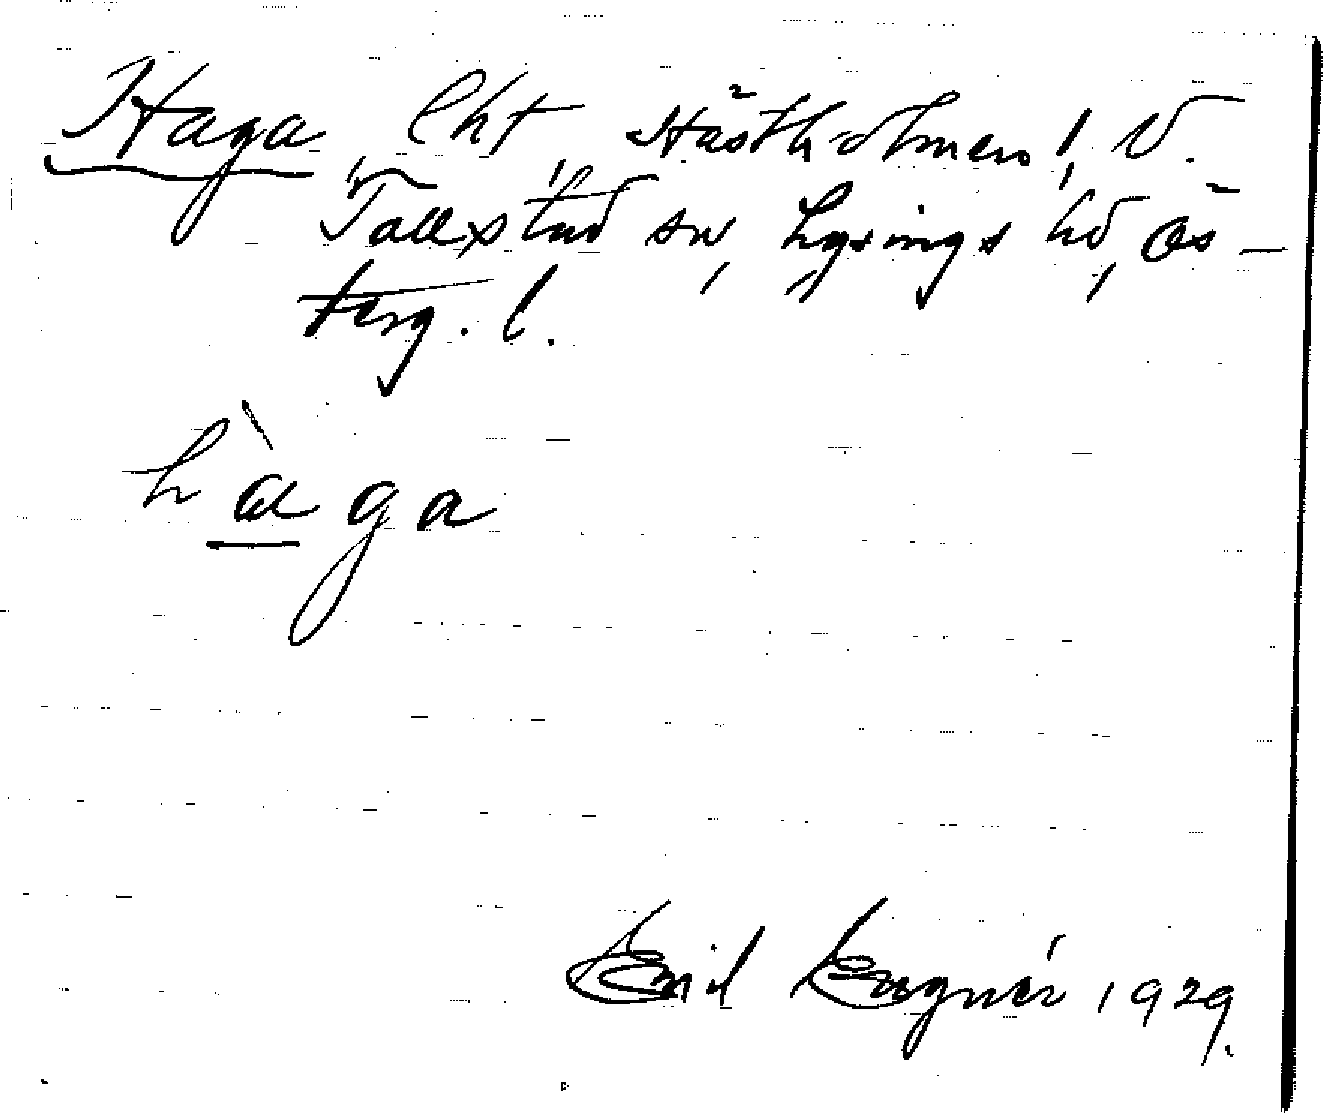 Haga, lht, Hästholmen 1, V.
Tollstad sn, Lysings hd, Ös-
terg. l.
hàga
Emil Eugnér 1929.